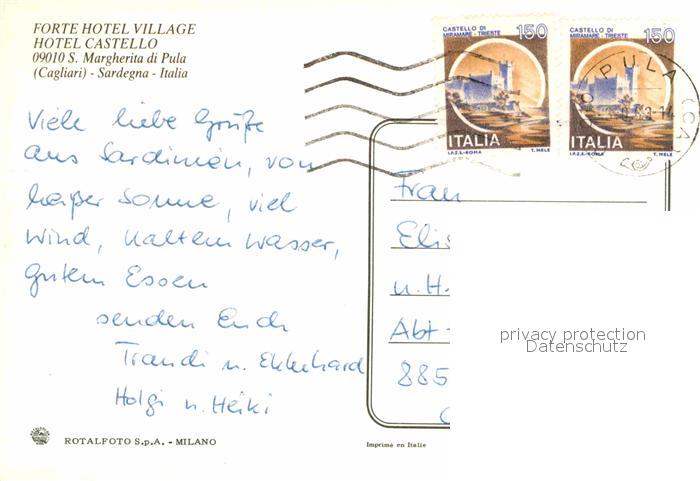 FORTE HOTEL VILLAGE
HOTEL CASTELLO
09010 S. Margherita di Pula
(Cagliari) - Sardegna - Italia
Viele liebe Grüße
aus Sardinien, von
heißer Sonne, viel
Wind, kaltem Wasser,
gutem Essen
senden Euch
Traudi u. Ekkehard
Holgi u. Heiki
ROTALFOTO S.p.A. - MILANO
CASTELLO DI
MIRAMARE - TRIESTE
150
ITALIA
I.P.Z.S.-ROMA T. MELE
CASTELLO DI
MIRAMARE - TRIESTE
150
ITALIA
I.P.Z.S.-ROMA T. MELE
PULA (CA)
Frau
Elis
u. H.
Abt-
885
privacy protection
Datenschutz
Imprimé en Italie